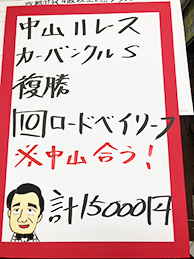 中山11レース
カーバンクルS
複勝
10ロードベイリーフ
※中山合う!
計15000円